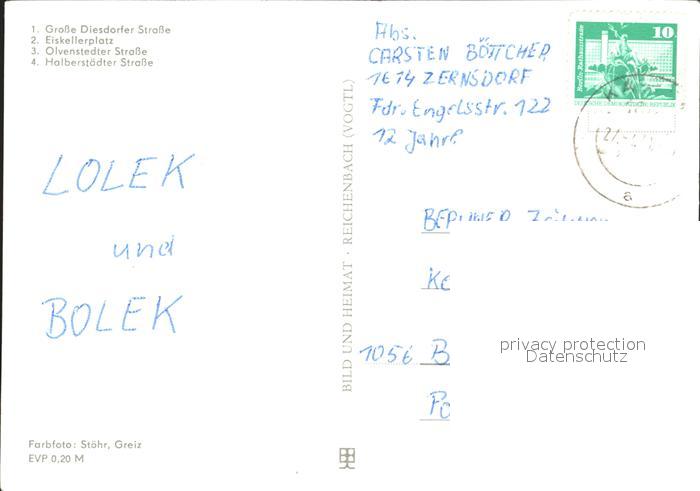 1. Große Diesdorfer Straße
2. Eiskellerplatz
3. Olvenstedter Straße
4. Halberstädter Straße
LOLEK
und
BOLEK
Farbfoto: Stöhr, Greiz
EVP 0,20 M
BILD UND HEIMAT · REICHENBACH (VOGTL)
Abs.
CARSTEN BÖTTCHER
1614 ZERNSDORF
Fdr.-Engelsstr. 122
12 Jahre
Berlin, Rathausstraße
10
DEUTSCHE DEMOKRATISCHE REPUBLIK
a
1056 B
privacy protection
Datenschutz